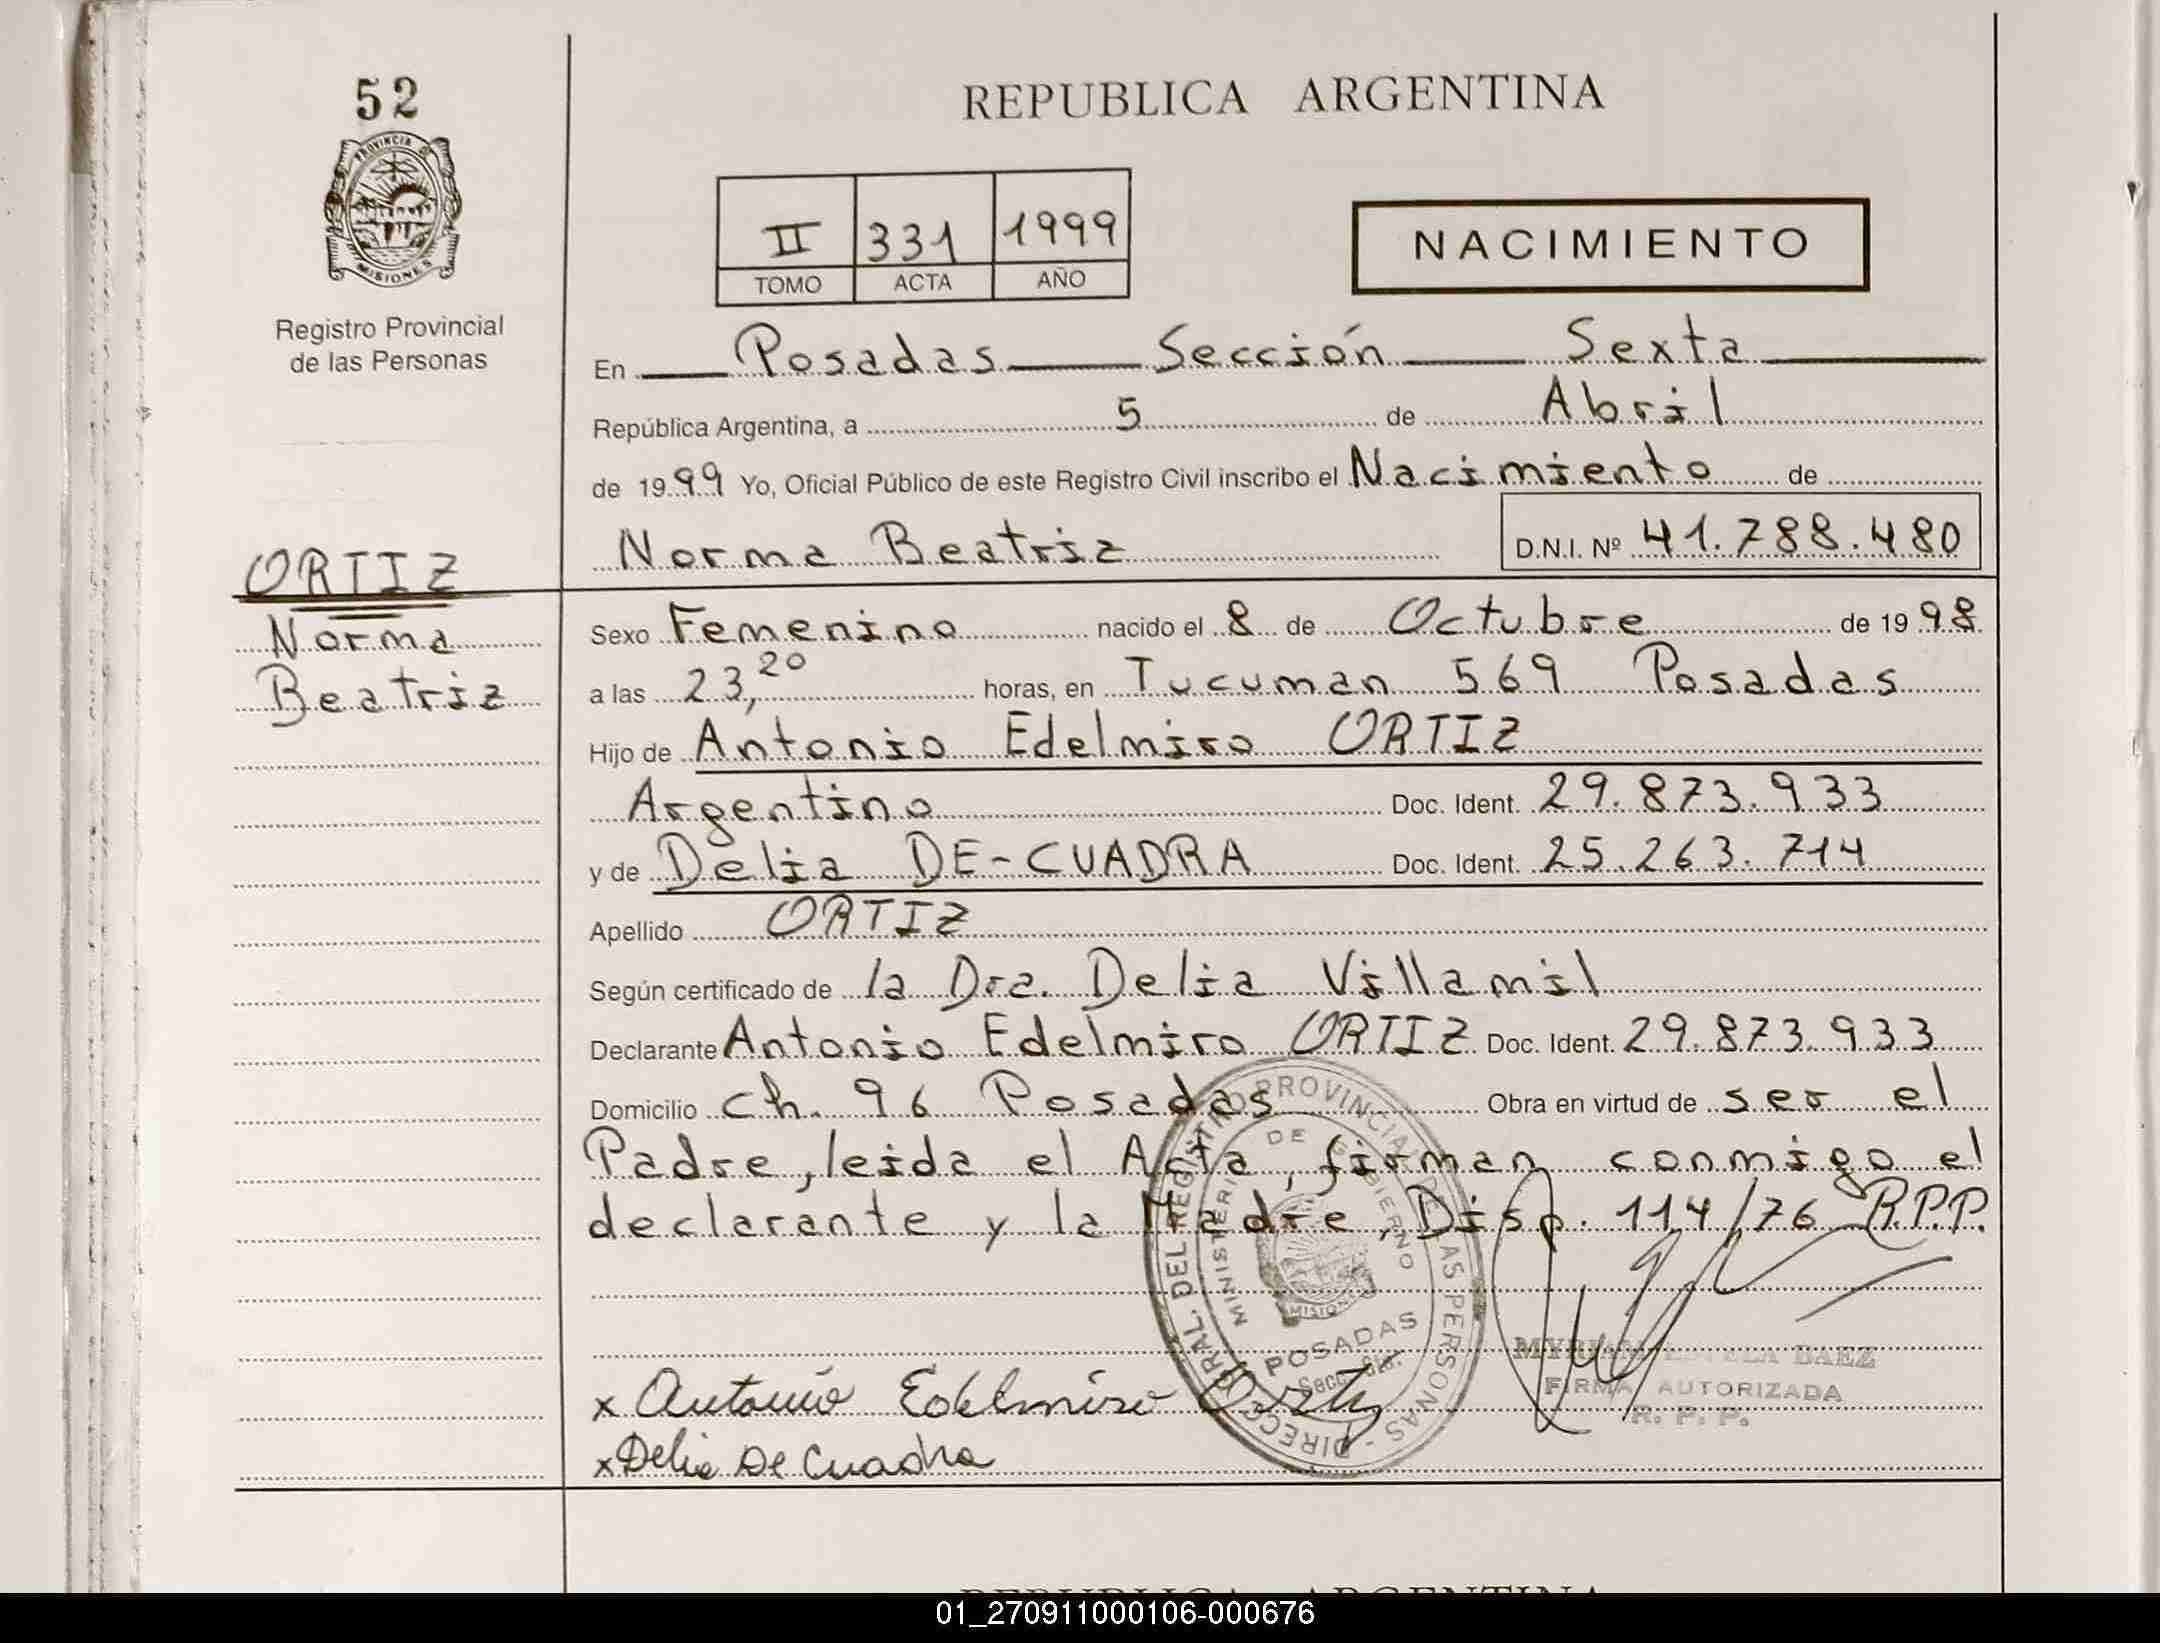 52
PROVINCIA DE
MISIONES
Registro Provincial
de las Personas
REPUBLICA ARGENTINA
II 331 1999
TOMO ACTA AÑO
NACIMIENTO
En Posadas Sección Sexta
República Argentina, a 5 de Abril
de 1999 Yo, Oficial Público de este Registro Civil inscribo el Nacimiento de
Norma Beatriz D.N.I. Nº 41.788.480
ORTIZ
Norma
Beatriz
Sexo Femenino nacido el 8 de Octubre de 1998
a las 23,20 horas, en Tucuman 569 Posadas
Hijo de Antonio Edelmiro ORTIZ
Argentino Doc. Ident. 29.873.933
y de Delia DE-CUADRA Doc. Ident. 25.263.714
Apellido ORTIZ
Según certificado de la Dra. Delia Villamil
Declarante Antonio Edelmiro ORTIZ Doc. Ident. 29.873.933
Domicilio ch. 96 Posadas Obra en virtud de ser el
Padre, leida el Acta, firman conmigo el
declarante y la Madre, Disp. 114/76 R.P.P.
DIRECC. GRAL. DEL REGISTRO PROVINCIAL DE LAS PERSONAS
MINISTERIO DE GOBIERNO
MISIONES
POSADAS
Secc. 6ta.
BAEZ
FIRMA AUTORIZADA
R. P. P.
x Antonio Edelmiro Ortiz
x Delia De Cuadra
REPUBLICA ARGENTINA
01_270911000106-000676